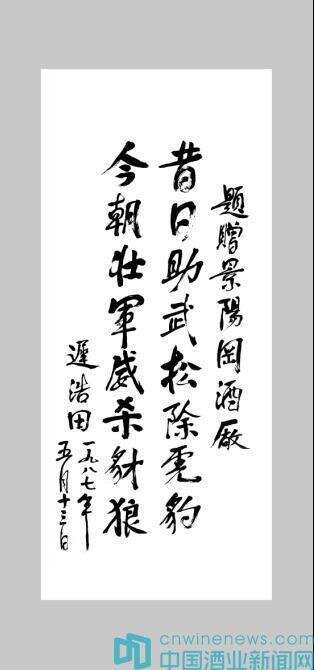 題贈景陽岡酒厰
昔日助武松除虎豹
今朝壮軍威杀豺狼
遲浩田
一九八七年
五月十三日
cnwinenews.com
中国酒业新闻网